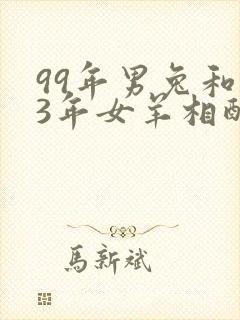 99年男兔和
3年女羊相配
馬新斌